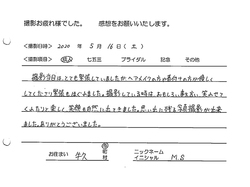 撮影お疲れ様でした。　感想をお願いいたします。
<撮影日時>　2020 年 5 月 16 日 (土)
<撮影項目>　成人　七五三　ブライダル　記念　その他
撮影当日はとても緊張していましたがヘアメイクの方や着付けの方が優しく
してくださり緊張もほぐれました。撮影している時はおもしろい事を言い、笑わせて
くださり楽しく笑顔も自然に出ってきました。思い出に残る写真撮影が出来
ました。ありがとうございました。
お住まい　牛久　市　町　村　ニックネーム　イニシャル　M.S